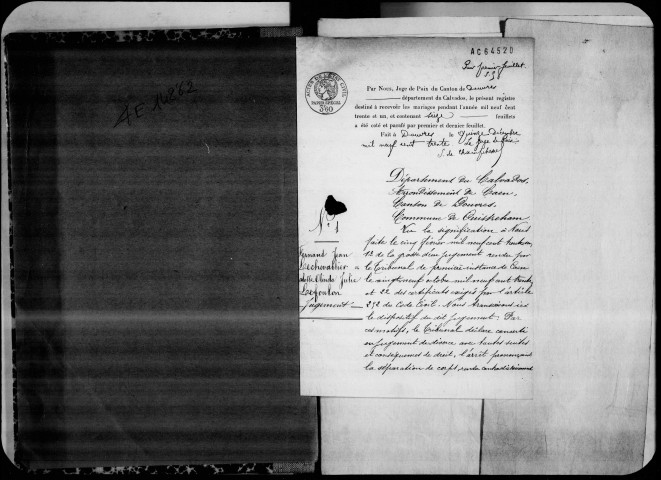 4E 14862
AC64520
Par premier feuillet.
ACTES DE L'ETAT CIVIL
PAPIER SPECIAL
Par Nous, Juge de Paix du Canton de Douvres
département du Calvados, le présent registre
destiné à recevoir les mariages pendant l'année mil neuf cent
trente et un, et contenant seize feuillets
a été coté et parafé par premier et dernier feuillet.
Fait à Douvres le quinze Décembre
mil neuf cent trente Le Juge de Paix
Département du Calvados,
Arrondissement de Caen,
Canton de Douvres.
Commune de Ouistreham
N° 1
Fernand Jean
Lechevallier &
Claude Julie
Jugement
Vu la signification à Nous
faite le cinq février mil neuf cent trente un
1° de la grosse d'un jugement rendu par
le Tribunal de première instance de Caen
le vingt neuf octobre mil neuf cent trente
et 2° des certificats exigés par l'article
252 du Code Civil. Nous transcrivons ici
le dispositif du dit jugement: Par
ces motifs, le Tribunal déclare converti
en jugement de divorce avec toutes suites
et conséquences de droit, l'arrêt prononçant
la séparation de corps, rendu contradictoirement